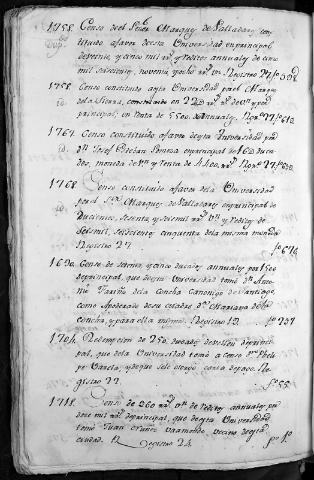 1758. Censo de el Señor Marques de Valladares cons
tituido a favor de esta Universidad en principal
de veinte, y cinco mil rs. y reditos annuales de
mil setecientos, noventa y ocho rs. vn. Registro 27. fo. 598
1758. Censo constituido a esta Universidad por el Marques
id. de la Sierra, constituido en 220 rs. de vn. y por
principal, en Renta de 5500. annuales. Rgro. 27. fo. 612
1767. Censo constituido a favor de esta Universidad por
id. Dn. Josef Esteban principal de 160 duca
dos, moneda de vn. y Renta de 4.400. rs. Rgro. 27. fo. 620
1768. Censo constituido a favor de la Universidad
id. por el Sr. Marques de Valladares en principal de
Ducientos, sesenta, y seis mil rs. vn. y Reditos de
Seis mil, seiscientos cinquenta de la misma moneda
Registro 27. fo. 676
1690. Censo de setenta, y cinco ducados annuales por 1500
de principal, que dio a esta Universidad tomó Dn. Anto
nio Fariña de la Concha Canonigo de Santiago
como Apoderado de su cuñada Da. Mariana de la
Concha, y para ella misma. Registro 19. fo. 337
1704. Redempcion de 250. ducados de vellon de princi
pal, que de la Universidad tomó a censo Dn. Pheli
pe Garcia, y de que se le otorgó carta de pago. Re
gistro 22. fo. 55
1718. Censo de 260 rs. vn. de reditos annuales por
doce mil rs. de principal, que de esta Universidad
tomó Juan Nuñez Vaamonde, vecino de esta
ciudad. Registro 24. fo. 10